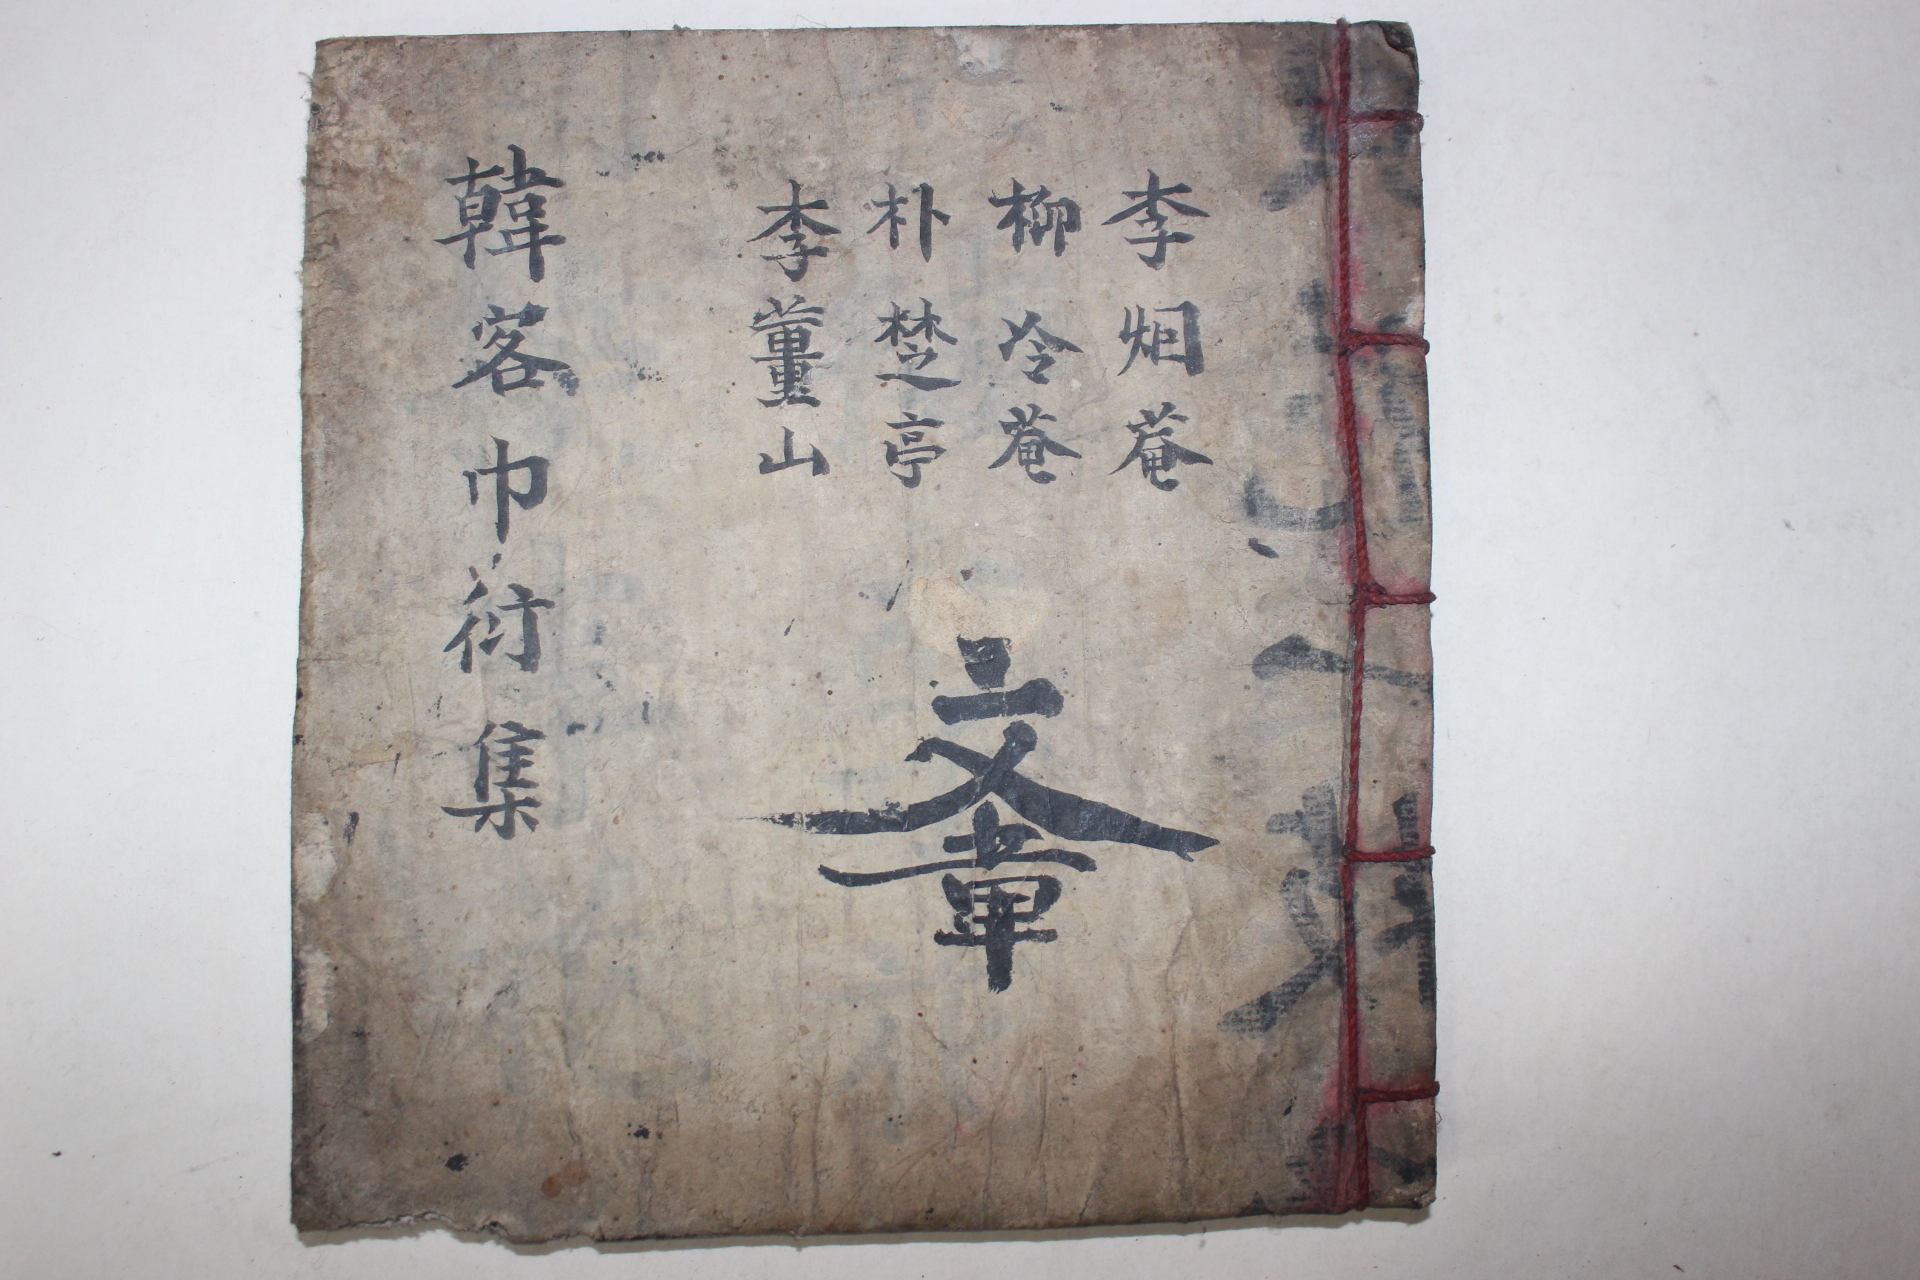 李烟菴
柳冷菴
朴楚亭
李薑山
文章
韓客巾衍集